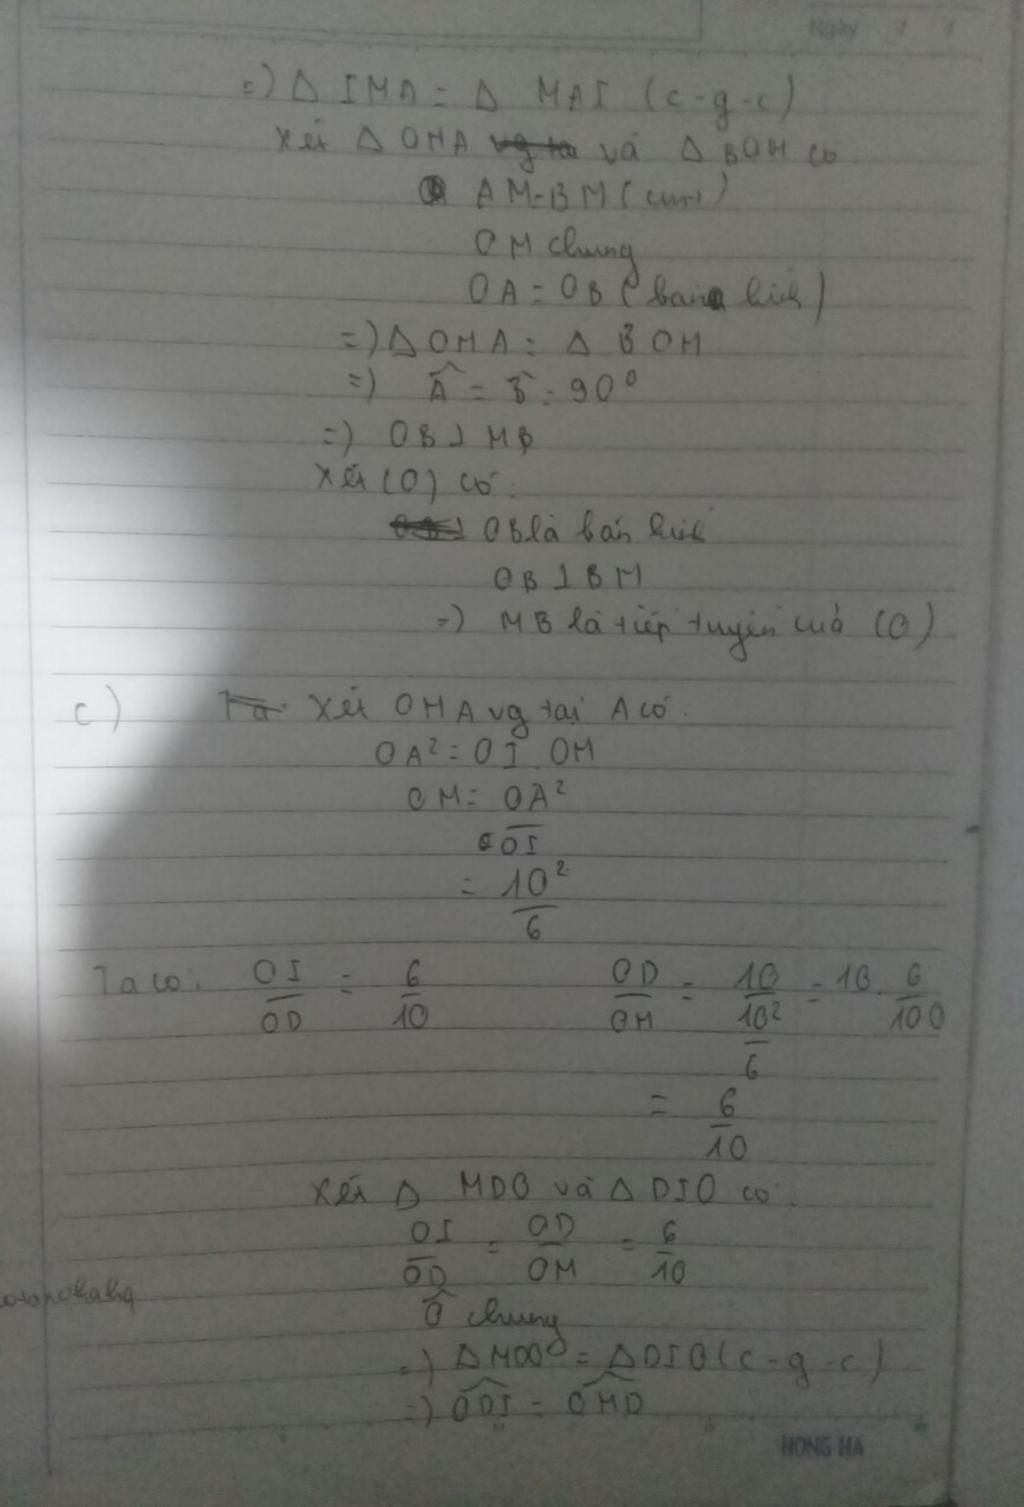 Ngày / /
=) Δ IMA = Δ MAI (c-g-c)
Xét Δ OMA và Δ BOM có
AM=BM (cmt)
OM chung
OA = OB (bán kính)
=) Δ OMA = Δ BOM
=) Â = B̂ = 90°
=) OB⊥MB
Xét (O) có:
OB là bán kính
OB⊥BM
=) MB là tiếp tuyến của (O)
c) Xét OMA vg tại A có.
OA² = OI.OM
OM = OA²/OI
= 10²/6
Ta có: OI/OD = 6/10 OD/OM = 10/(10²/6) = 10 . 6/100
= 6/10
Xét Δ MDO và Δ DIO có:
OI/OD = OD/OM = 6/10
Ô chung
=) Δ MDO = Δ DIO (c-g-c)
=) ODI = OMD
HONG HA